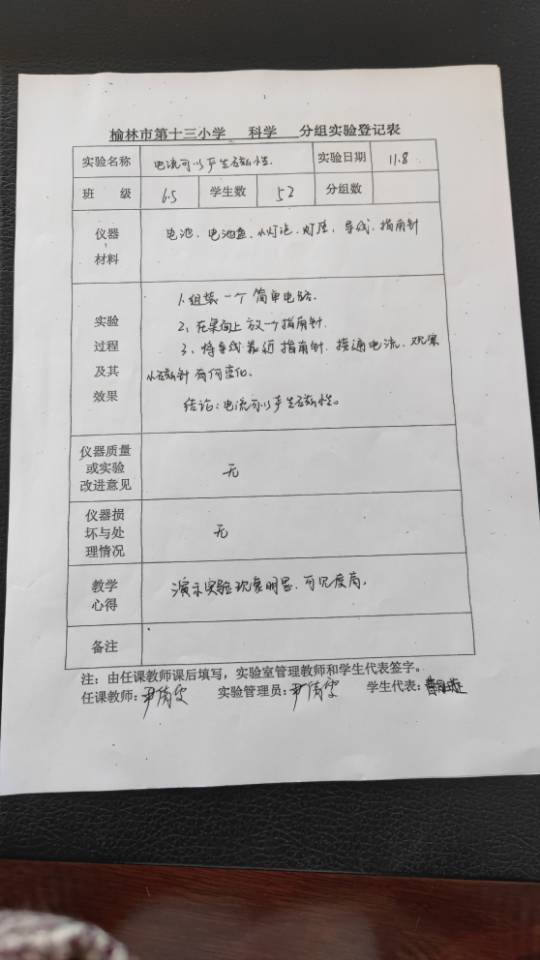 榆林市第十三小学 科学 分组实验登记表
实验名称 电流可以产生磁性. 实验日期 11.8
班 级 6.5 学生数 52 分组数
仪器材料 电池、电池盒、小灯泡、灯座、导线、指南针
实验过程及其效果
1、组装一个简单电路.
2、在桌面上放一个指南针.
3、将导线靠近指南针.接通电流.观察
小磁针有何变化。
结论:电流可以产生磁性。
仪器质量或实验改进意见 无
仪器损坏与处理情况 无
教学心得 演示实验现象明显.可见度高。
备注
注:由任课教师课后填写,实验室管理教师和学生代表签字。
任课教师: 实验管理员: 学生代表: